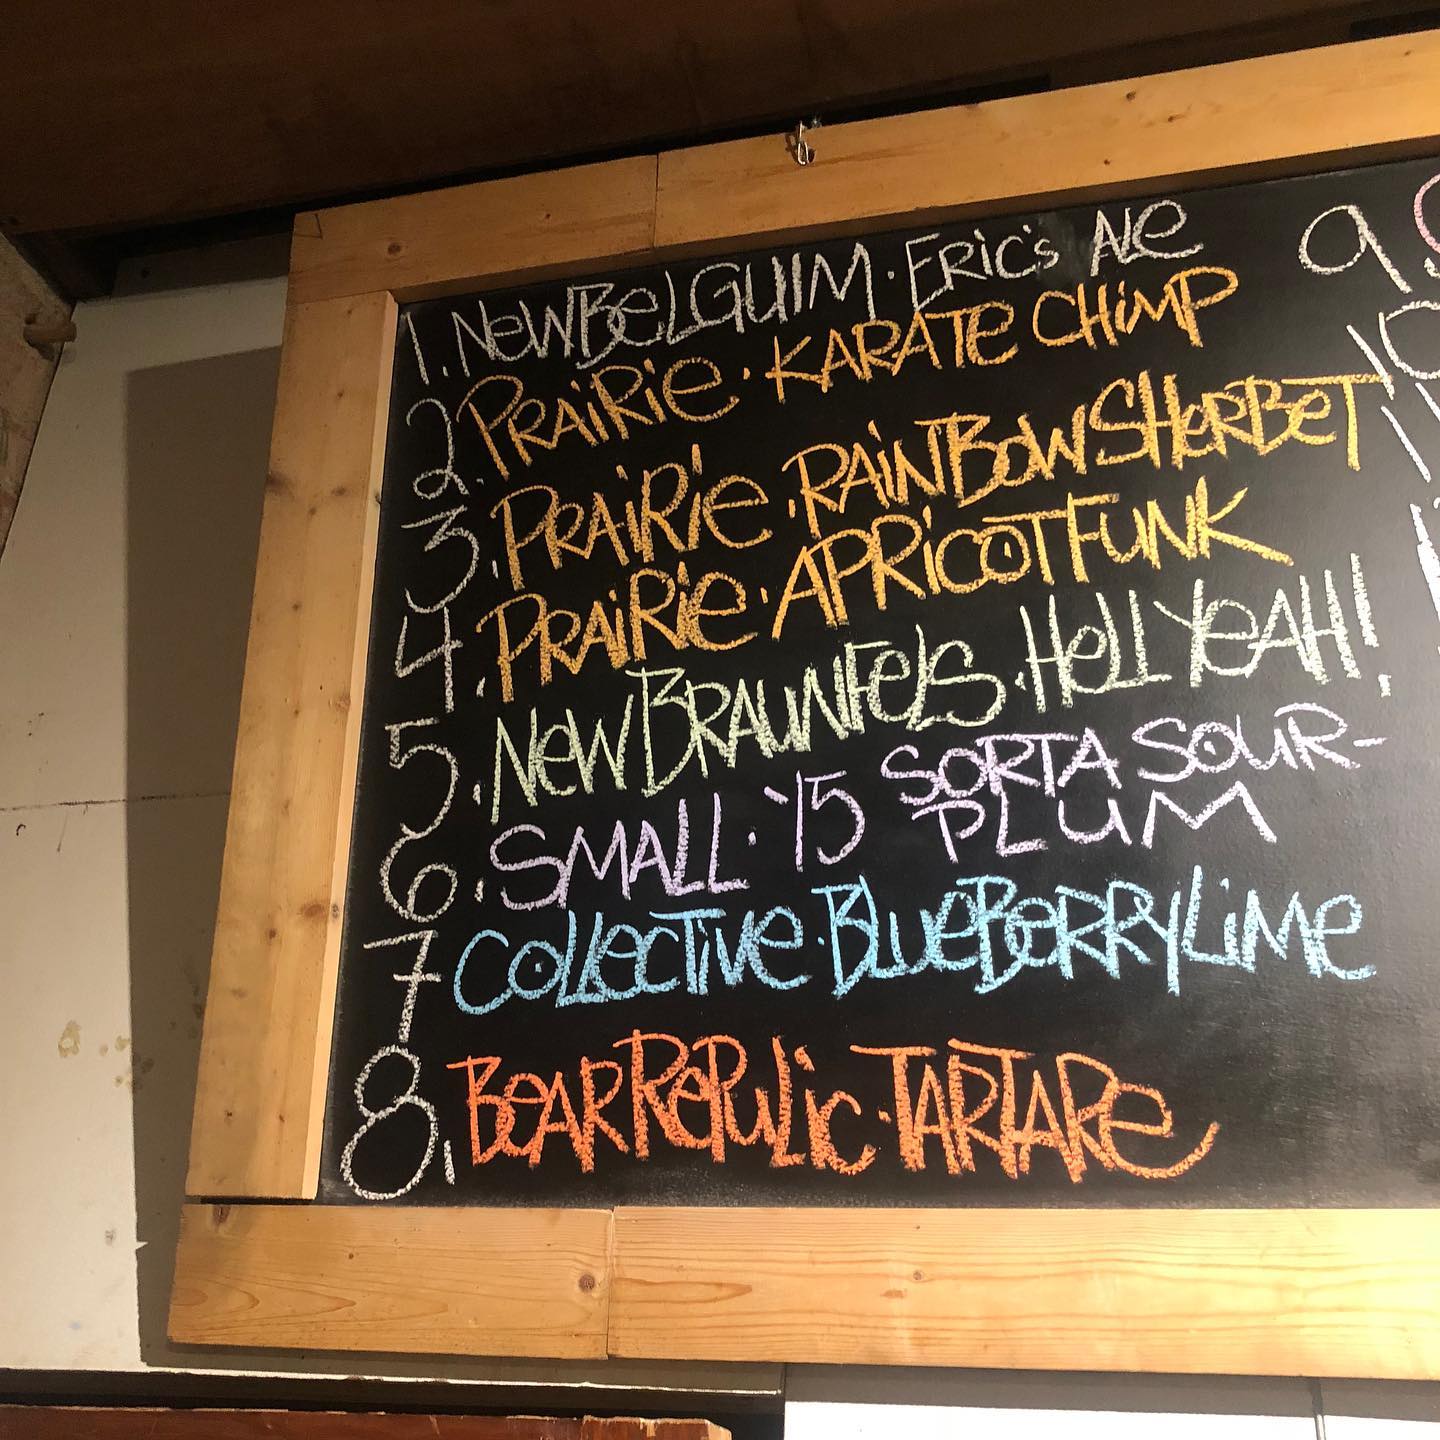 1. NEW BELGUIM · ERIC'S ALE
2. PRAIRIE · KARATE CHIMP
3. PRAIRIE · RAINBOW SHERBET
4. PRAIRIE · APRICOT FUNK
5. NEW BRAUNFELS · HELL YEAH!
6. SMALL · '15 SORTA SOUR-
PLUM
7 COLLECTIVE · BLUEBERRY LIME
8. BEAR REPULIC · TARTARE
9
10